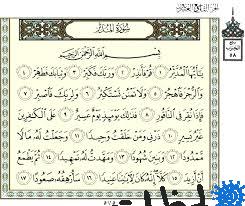 الجزء التاسع والعشرون
سُورَةُ الْمُدَّثِّر
بِسْمِ اللَّهِ الرَّحْمَٰنِ الرَّحِيمِ
يَٰٓأَيُّهَا ٱلْمُدَّثِّرُ ١ قُمْ فَأَنذِرْ ٢ وَرَبَّكَ فَكَبِّرْ ٣ وَثِيَابَكَ فَطَهِّرْ ٤
وَٱلرُّجْزَ فَٱهْجُرْ ٥ وَلَا تَمْنُن تَسْتَكْثِرُ ٦ وَلِرَبِّكَ فَٱصْبِرْ ٧
فَإِذَا نُقِرَ فِى ٱلنَّاقُورِ ٨ فَذَٰلِكَ يَوْمَئِذٍ يَوْمٌ عَسِيرٌ ٩ عَلَى ٱلْكَٰفِرِينَ
غَيْرُ يَسِيرٍ ١٠ ذَرْنِى وَمَنْ خَلَقْتُ وَحِيدًا ١١ وَجَعَلْتُ لَهُۥ مَالًا
مَّمْدُودًا ١٢ وَبَنِينَ شُهُودًا ١٣ وَمَهَّدتُّ لَهُۥ تَمْهِيدًا ١٤ ثُمَّ يَطْمَعُ
أَنْ أَزِيدَ ١٥ كَلَّآ إِنَّهُۥ كَانَ لِءَايَٰتِنَا عَنِيدًا ١٦ سَأُرْهِقُهُۥ صَعُودًا ١٧
٥٨